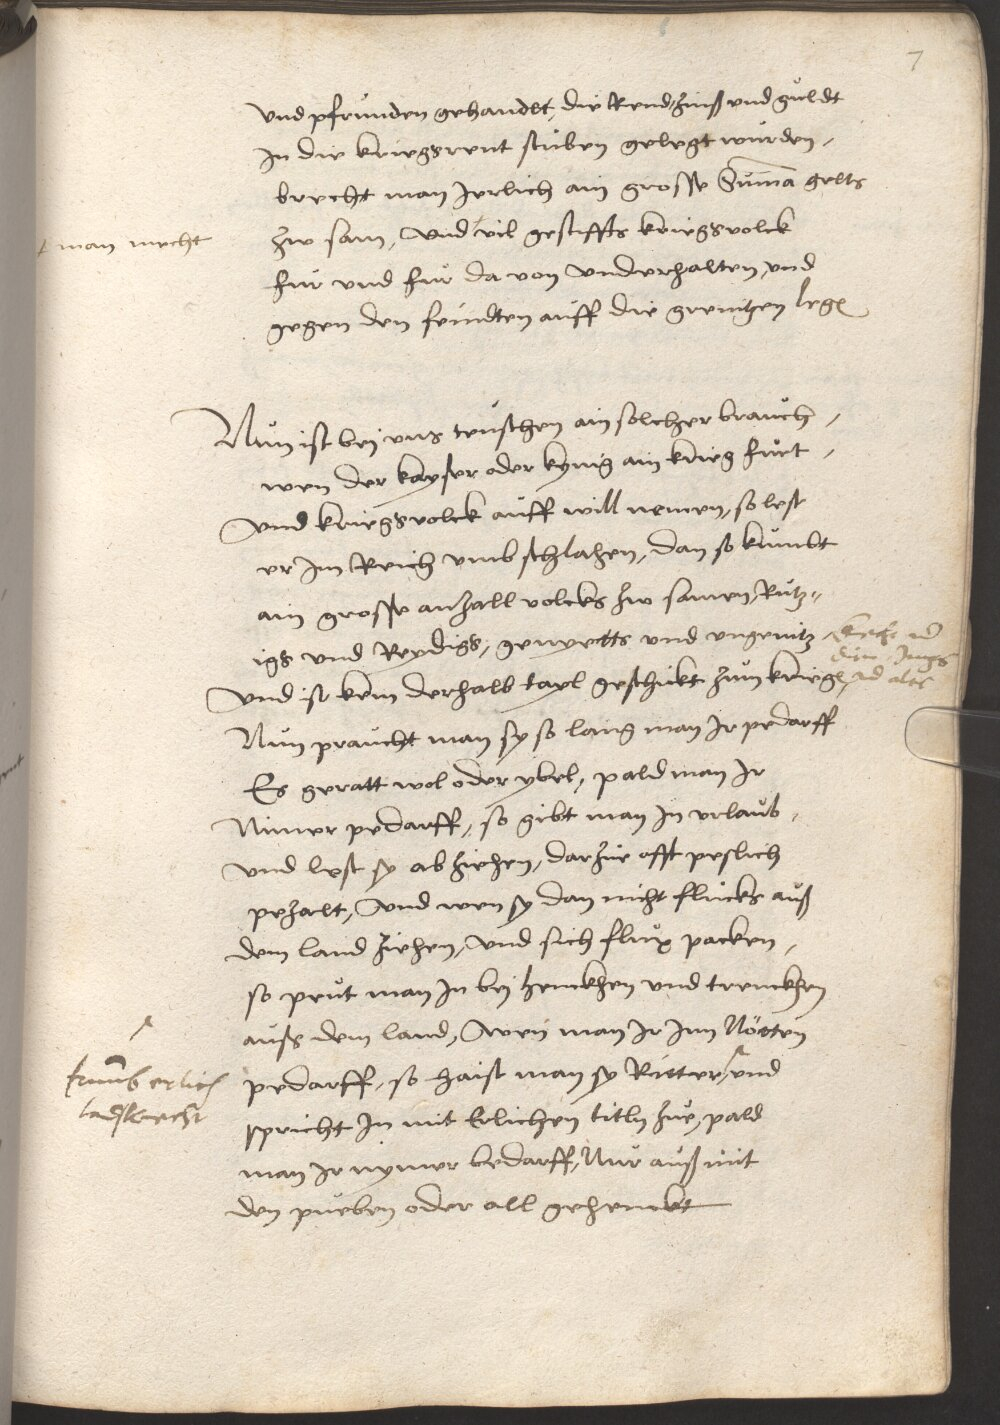 7
vnd pfrunden gehandlt, die Rend, Zinß vnd guldt
In die kriegsrent stuben gelegt wurden,
brecht man Jerlich ain grosse Suma gelts
zw sam, vnd vil gestiffts kriegsvolck
man mecht
fur vnd fur da von vnderhalten, vnd
gegen den feindten auff die grenitzen legen
Nun ist bej vns teuschen ain solcher brauch,
wen der kayser oder kynig ain krieg fuert,
vnd kriegsvolck auff will nemen, so lest
er Im Reich vmb schlahen, dan so kumbt
ain grosse anzall volcks zw samen, Rutz-
igs vnd Reydigs, genyetts vnd vngenitz
Jungs
vnd alts
vnd ist kein derhalb tayl geschickt zum krieg,
Nun praucht man sy so lang man Ir pedarff
Es geratt wol oder ybel, pald man Ir
Nimer pedarff, so gibt man In vrlaub,
vnd lest sy ab ziehen, darzue offt peslich
pezalt, vnd wen sy dan nicht flucks auß
dem land ziehen, vnd sich flux packen,
so peut man In bej henckhen vnd trenckhen
auss dem land, Wen man Ir Inn Nötten
pedarff, so haist man sy Ritter, vnd
frumb erlich
ladsknecht
spricht In mit Erlichen titln zue, pald
man Ir nymer bedarff, Nur auß mit
den pueben oder all gehenckt